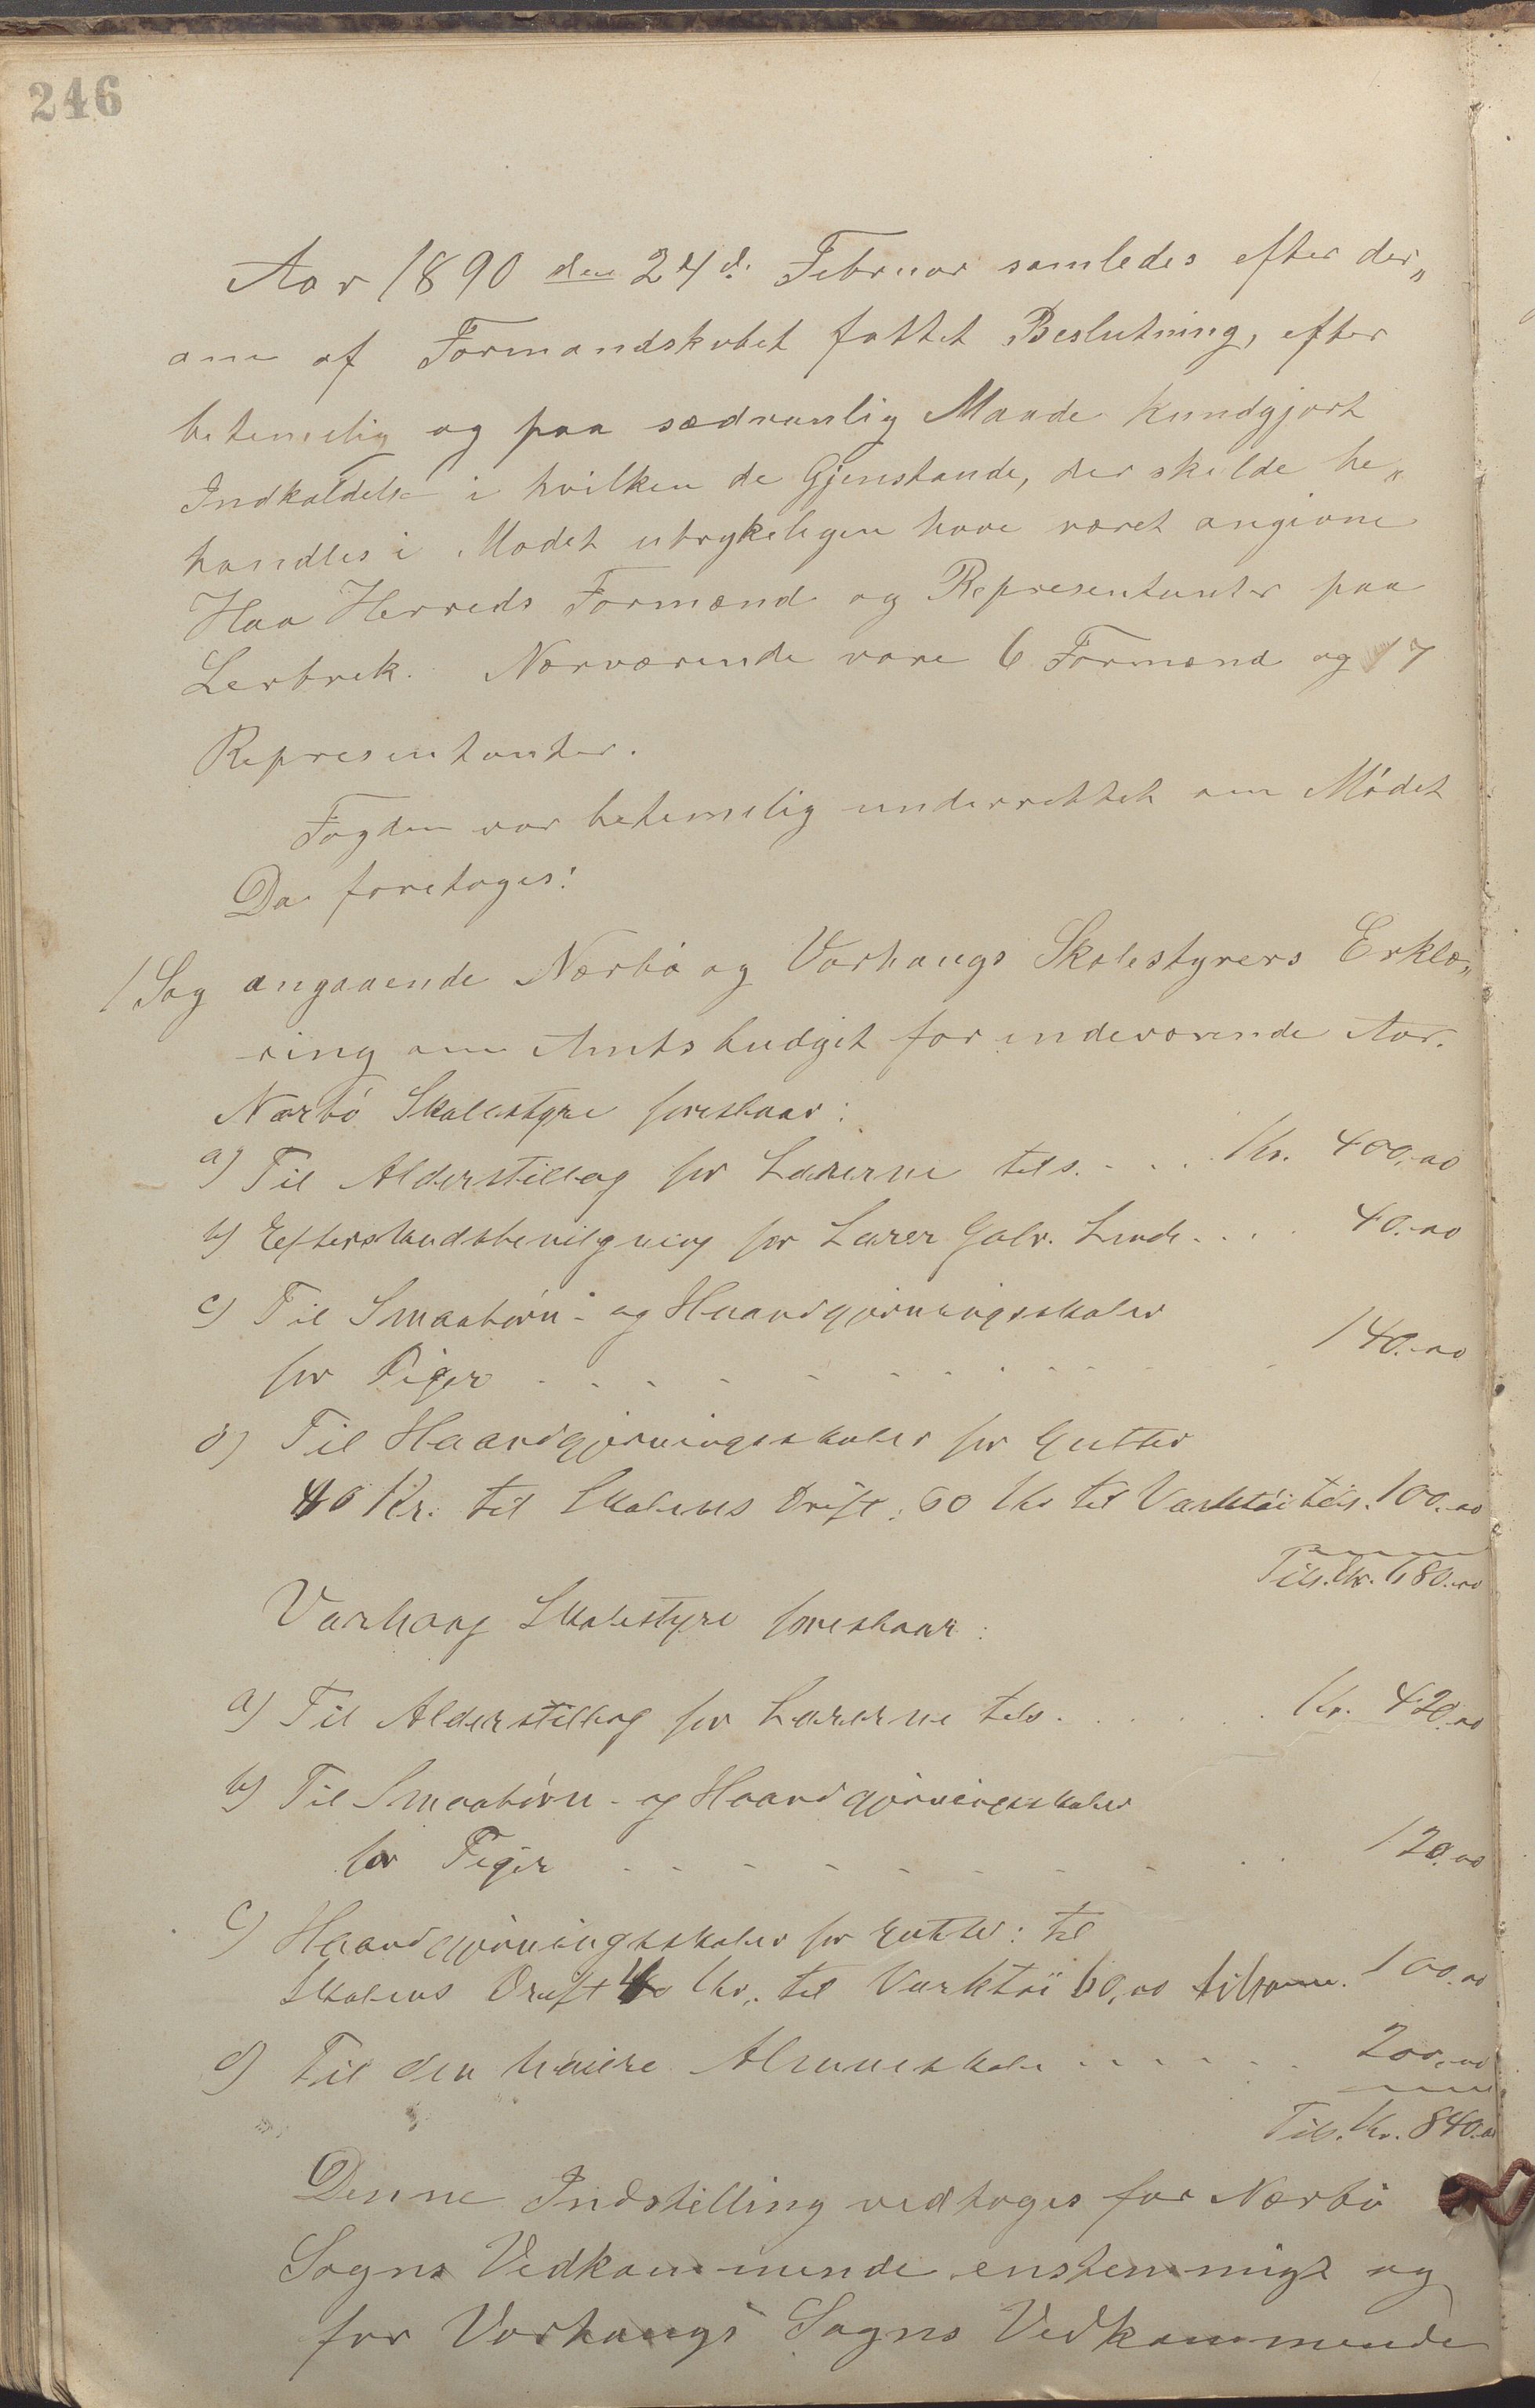 246
Aar 1890 den 24d. Februar samledes efter der„
om af Formandskabet fattet Beslutning, efter
betimelig og paa sædvanlig Maade kundgjort
Indkaldelse i hvilken de Gjenstande, der skulde be„
handles i Mødet udtrykeligen have været angivne
Haa Herreds Formænd og Repræsentanter paa
Lerbrek. Nærværende vare 6 Formænd og 17
Repræsentanter.
Fogden var betimelig underrettet om Mødet
Da foretoges:
1 Sag angaaende Nærbø og Varhaugs Skolestyrers Erklæ„
ring om Amtsbudget for indeværende Aar.
Nærbø Skolestyre foreslaar:
a) Til Alderstillæg for Lærerne tils. . . . Kr. 400.00
b) Efterslundsbevilgning for Lærer Gabr. Lende . . . . 40.00
c) Til Smaabørn- og Haandgjerningsskoler
for Piger . . . . . . . . . . 140.00
d) Til Haandgjerningsskoler for Gutter
40 Kr. til Skolens Drift, 60 Kr til Værktøi tils. 100.00
Tils. Kr. 680.00
Varhaug Skolestyre foreslaar:
a) Til Alderstillæg for Lærerne tils. . . . . . Kr. 420.00
b) Til Smaabørn- og Haandgjerningsskoler
for Piger . . . . . . . . . . 120.00
c) Haandgjerningsskoler for Gutter: til
Skolens Drift 40 Kr, til Værktøi 60,00 tilsam. 100.00
d) Til den høiere Almueskole . . . . . . 200.00
Tils. Kr. 840.00
Denne Indstilling vedtoges for Nærbø
Sogns Vedkommende enstemmigt og
for Varhaugs Sogns Vedkommende